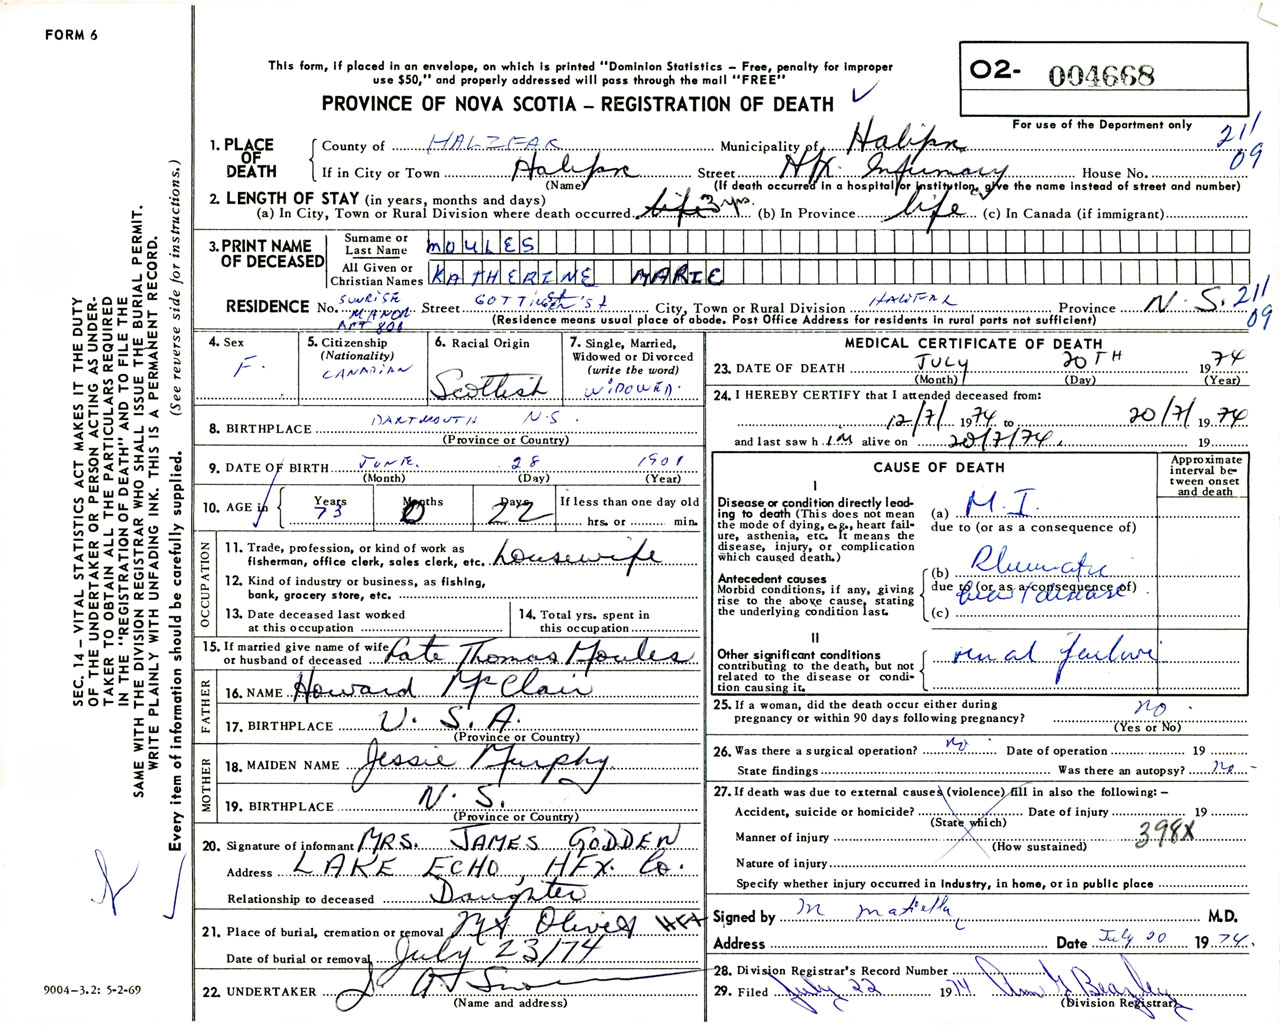 FORM 6
This form, if placed in an envelope, on which is printed "Dominion Statistics – Free, penalty for improper
use $50," and properly addressed will pass through the mail "FREE"
PROVINCE OF NOVA SCOTIA – REGISTRATION OF DEATH
O2- 004668
For use of the Department only
211
09
1. PLACE OF DEATH
County of HALIFAX Municipality of Halifax
If in City or Town Halifax Street Hfx Infirmary House No.
(Name) (If death occurred in a hospital or institution, give the name instead of street and number)
2. LENGTH OF STAY (in years, months and days)
(a) In City, Town or Rural Division where death occurred life 3 yrs. (b) In Province life (c) In Canada (if immigrant)
3. PRINT NAME OF DECEASED
Surname or Last Name MOULES
All Given or Christian Names KATHERINE MARIE
RESIDENCE No. SUNRISE MANOR APT 801 Street GOTTINGEN ST City, Town or Rural Division HALIFAX Province N.S. 211
09
(Residence means usual place of abode. Post Office Address for residents in rural parts not sufficient)
4. Sex
F.
5. Citizenship
(Nationality)
CANADIAN
6. Racial Origin
Scottish
7. Single, Married,
Widowed or Divorced
(write the word)
WIDOWED.
8. BIRTHPLACE DARTMOUTH N.S.
(Province or Country)
9. DATE OF BIRTH JUNE. 28 1901
(Month) (Day) (Year)
10. AGE in
Years 73
Months 0
Days 22
If less than one day old
hrs. or min.
OCCUPATION
11. Trade, profession, or kind of work as
fisherman, office clerk, sales clerk, etc. housewife
12. Kind of industry or business, as fishing,
bank, grocery store, etc.
13. Date deceased last worked
at this occupation
14. Total yrs. spent in
this occupation
15. If married give name of wife
or husband of deceased Late Thomas Moules
FATHER
16. NAME Howard McClair
17. BIRTHPLACE U.S.A.
(Province or Country)
MOTHER
18. MAIDEN NAME Jessie Murphy
19. BIRTHPLACE N.S.
(Province or Country)
20. Signature of informant MRS. JAMES GODDEN
Address LAKE ECHO, HFX. Co.
Relationship to deceased Daughter
21. Place of burial, cremation or removal Mt Olivet HFX
Date of burial or removal July 23/74
22. UNDERTAKER J. A. Snow
(Name and address)
MEDICAL CERTIFICATE OF DEATH
23. DATE OF DEATH JULY 20TH 1974
(Month) (Day) (Year)
24. I HEREBY CERTIFY that I attended deceased from:
12/7/ 1974 to 20/7/ 1974
and last saw h IM alive on 20/7/74. 19
CAUSE OF DEATH
Approximate
interval be-
tween onset
and death
I
Disease or condition directly lead-
ing to death (This does not mean
the mode of dying, e.g., heart fail-
ure, asthenia, etc. It means the
disease, injury, or complication
which caused death.)
(a) M.I.
due to (or as a consequence of)
Antecedent causes
Morbid conditions, if any, giving
rise to the above cause, stating
the underlying condition last.
(b) Rheumatic
due to (or as a consequence of)
heart disease
(c)
II
Other significant conditions
contributing to the death, but not
related to the disease or condi-
tion causing it.
renal failure
25. If a woman, did the death occur either during
pregnancy or within 90 days following pregnancy? no
(Yes or No)
26. Was there a surgical operation? no Date of operation 19
State findings Was there an autopsy? no
27. If death was due to external causes (violence) fill in also the following: –
Accident, suicide or homicide? Date of injury 19
(State which)
Manner of injury 398X
(How sustained)
Nature of injury
Specify whether injury occurred in Industry, in home, or in public place
Signed by M M.D.
Address Date July 20 1974.
28. Division Registrar's Record Number
29. Filed July 22 1974 Ann G Beazley
(Division Registrar)
SEC. 14 – VITAL STATISTICS ACT MAKES IT THE DUTY
OF THE UNDERTAKER OR PERSON ACTING AS UNDER-
TAKER TO OBTAIN ALL THE PARTICULARS REQUIRED
IN THE "REGISTRATION OF DEATH" AND TO FILE THE
SAME WITH THE DIVISION REGISTRAR WHO SHALL ISSUE THE BURIAL PERMIT.
WRITE PLAINLY WITH UNFADING INK. THIS IS A PERMANENT RECORD.
Every item of information should be carefully supplied. (See reverse side for instructions.)
9004–3.2: 5-2-69